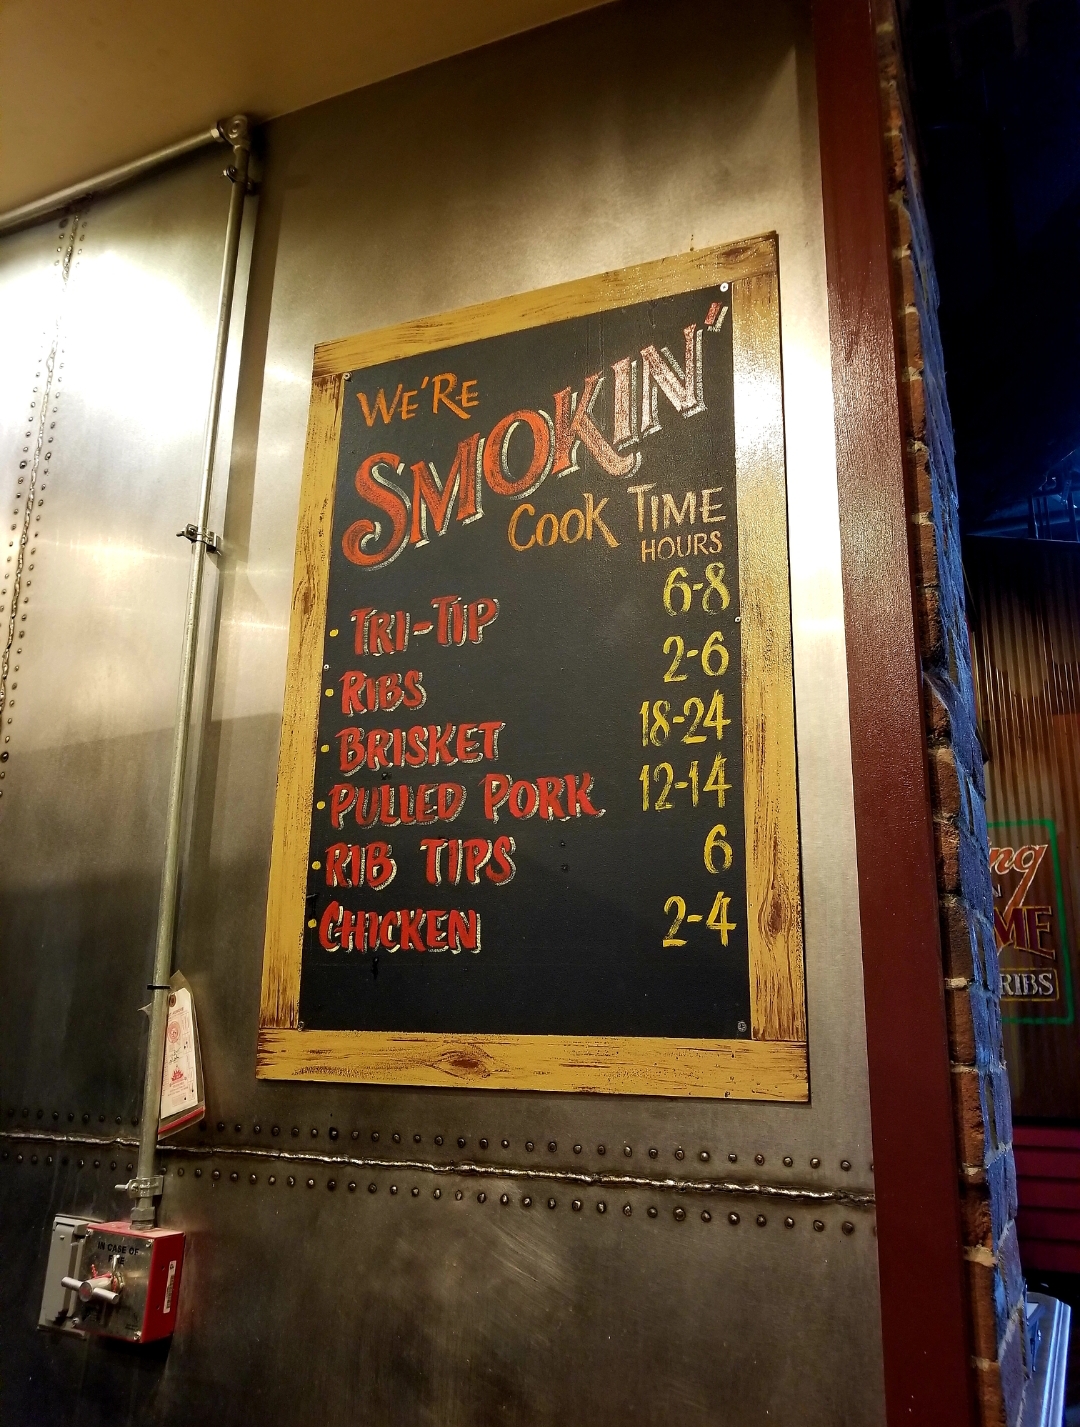 WE'RE
SMOKIN'
COOK TIME
HOURS
• TRI-TIP 6-8
• RIBS 2-6
• BRISKET 18-24
• PULLED PORK 12-14
• RIB TIPS 6
• CHICKEN 2-4
IN CASE OF
FIRE
RIBS